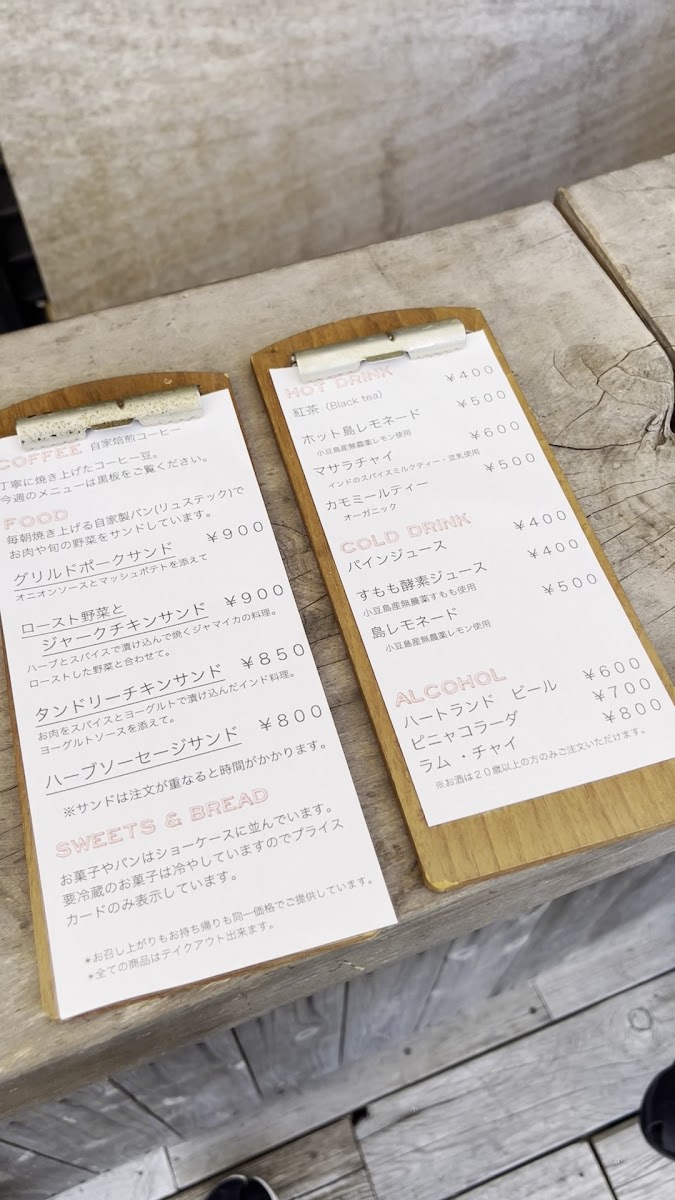 COFFEE 自家焙煎コーヒー
丁寧に焼き上げたコーヒー豆。
今週のメニューは黒板をご覧ください。
FOOD
毎朝焼き上げる自家製パン(リュステック)で
お肉や旬の野菜をサンドしています。
グリルドポークサンド ¥900
オニオンソースとマッシュポテトを添えて
ロースト野菜と
ジャークチキンサンド ¥900
ハーブとスパイスで漬け込んで焼くジャマイカの料理。
ローストした野菜と合わせて。
タンドリーチキンサンド ¥850
お肉をスパイスとヨーグルトで漬け込んだインド料理。
ヨーグルトソースを添えて。
ハーブソーセージサンド ¥800
※サンドは注文が重なると時間がかかります。
SWEETS & BREAD
お菓子やパンはショーケースに並んでいます。
要冷蔵のお菓子は冷やしていますのでプライス
カードのみ表示しています。
*お召し上がりもお持ち帰りも同一価格でご提供しています。
*全ての商品はテイクアウト出来ます。
HOT DRINK
紅茶（Black tea） ¥400
ホット島レモネード ¥500
小豆島産無農薬レモン使用
マサラチャイ ¥600
インドのスパイスミルクティー・豆乳使用
カモミールティー ¥500
オーガニック
COLD DRINK
パインジュース ¥400
すもも酵素ジュース ¥400
小豆島産無農薬すもも使用
島レモネード ¥500
小豆島産無農薬レモン使用
ALCOHOL
ハートランド ビール ¥600
ピニャコラーダ ¥700
ラム・チャイ ¥800
※お酒は20歳以上の方のみご注文いただけます。